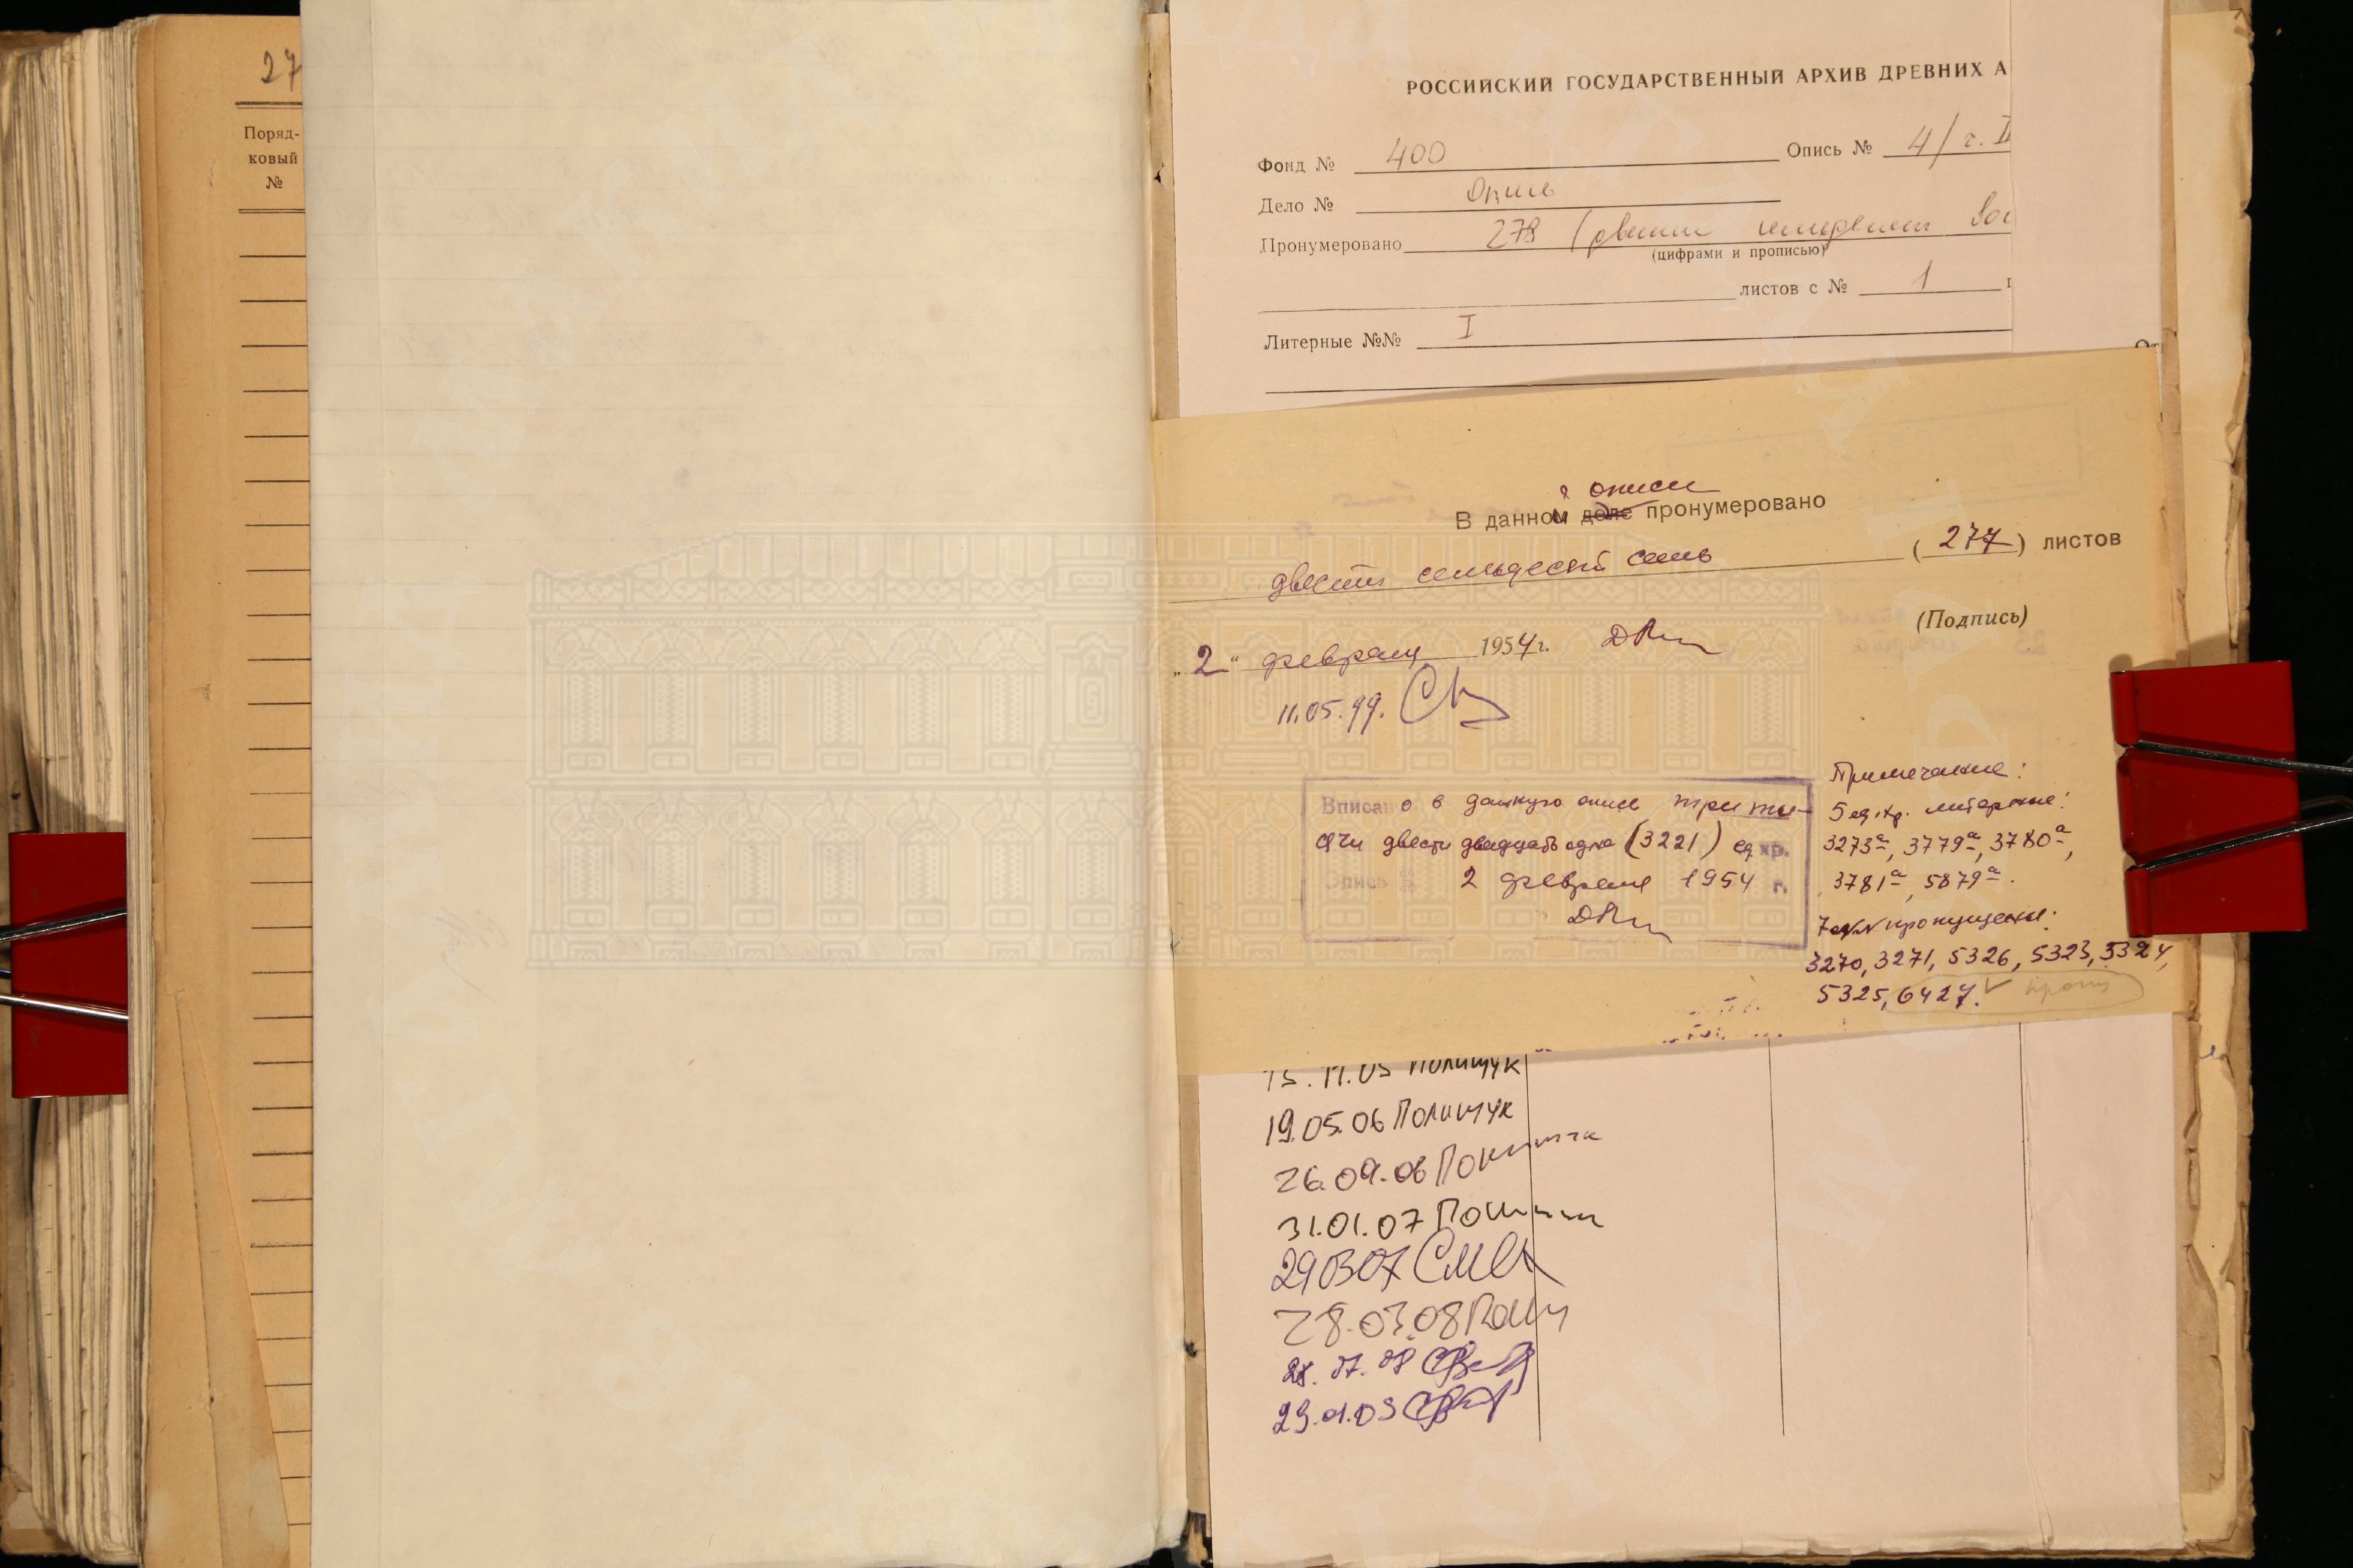 27
Поряд-
ковый
№
РОССИЙСКИЙ ГОСУДАРСТВЕННЫЙ АРХИВ ДРЕВНИХ А
Фонд № 400 Опись № 4/ч. II
Дело № Опись
Пронумеровано 278 (двести семьдесят вос
(цифрами и прописью)
листов с № 1
Литерные №№ I
От
й описи
В данном деле пронумеровано
двести семьдесят семь (277) листов
(Подпись)
„2“ февраля 1954 г.
11.05.99.
Вписано в данную описи три ты-
сячи двести двадцать одна (3221) ед. хр.
Опись 2 февраля 1954 г.
Примечание:
5 ед. хр. литерные:
3273а, 3779а, 3780а,
3781а, 5879а.
7 №№ пропущены:
3270, 3271, 5326, 5323, 5324,
5325, 6427.
15.11.05 Полищук
19.05.06 Полищук
26.09.06
31.01.07
290307
28.03.08